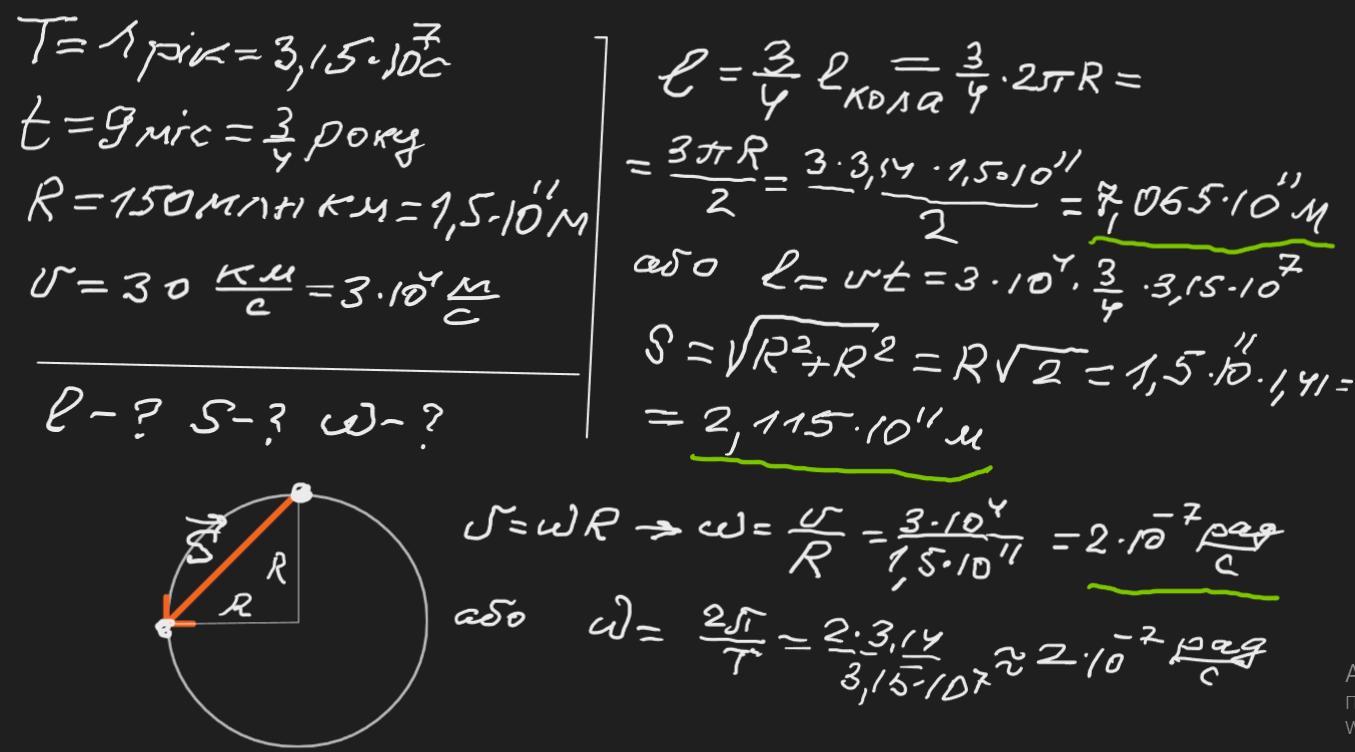 T = 1 рік = 3,15·10⁷ с
t = 9 міс = 3/4 року
R = 150 млн км = 1,5·10¹¹ м
v = 30 км/с = 3·10⁴ м/с
l - ? S - ? ω - ?
l = 3/4 l кола = 3/4 · 2πR =
= 3πR/2 = 3·3,14·1,5·10¹¹/2 = 7,065·10¹¹ м
або l = vt = 3·10⁴ · 3/4 · 3,15·10⁷
S = √(R² + R²) = R√2 = 1,5·10¹¹·1,41 =
= 2,115·10¹¹ м
S⃗
R
R
v = ωR → ω = v/R = 3·10⁴/1,5·10¹¹ = 2·10⁻⁷ рад/с
або ω = 2π/T = 2·3,14/3,15·10⁷ ≈ 2·10⁻⁷ рад/с